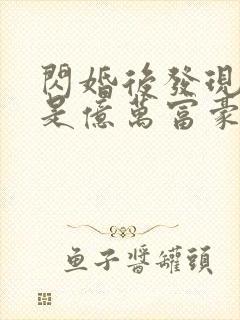 閃婚後發現
是億萬富豪
鱼子醬罐頭